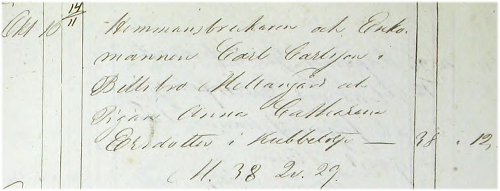 Okt 10 14/11 Hemmansbrukaren och Enke-
mannen Carl Carlsson i
Billsbro Mellangård och
Pigan Anna Catharina
Ersdotter i Kubbetorp — 38 . 12.
M. 38 Qv. 29